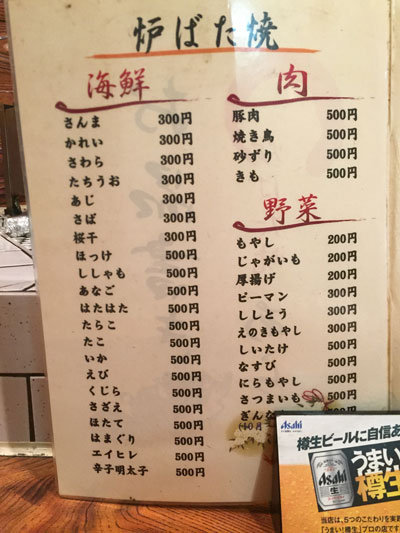 炉ばた焼
海鮮
さんま 300円
かれい 300円
さわら 300円
たちうお 300円
あじ 300円
さば 300円
桜干 300円
ほっけ 500円
ししゃも 500円
あなご 500円
はたはた 500円
たらこ 500円
たこ 500円
いか 500円
えび 500円
くじら 500円
さざえ 500円
ほたて 500円
はまぐり 500円
エイヒレ 500円
辛子明太子 500円
肉
豚肉 500円
焼き鳥 500円
砂ずり 500円
きも 500円
野菜
もやし 200円
じゃがいも 200円
厚揚げ 200円
ピーマン 300円
ししとう 300円
えのきもやし 300円
しいたけ 500円
なすび 500円
にらもやし 500円
さつまいも 500円
ぎんな
Asahi
樽生ビールに自信あ
Asahi
生
うまい
樽生
当店は、5つのこだわりを実
「うまい!樽生」プロの店です